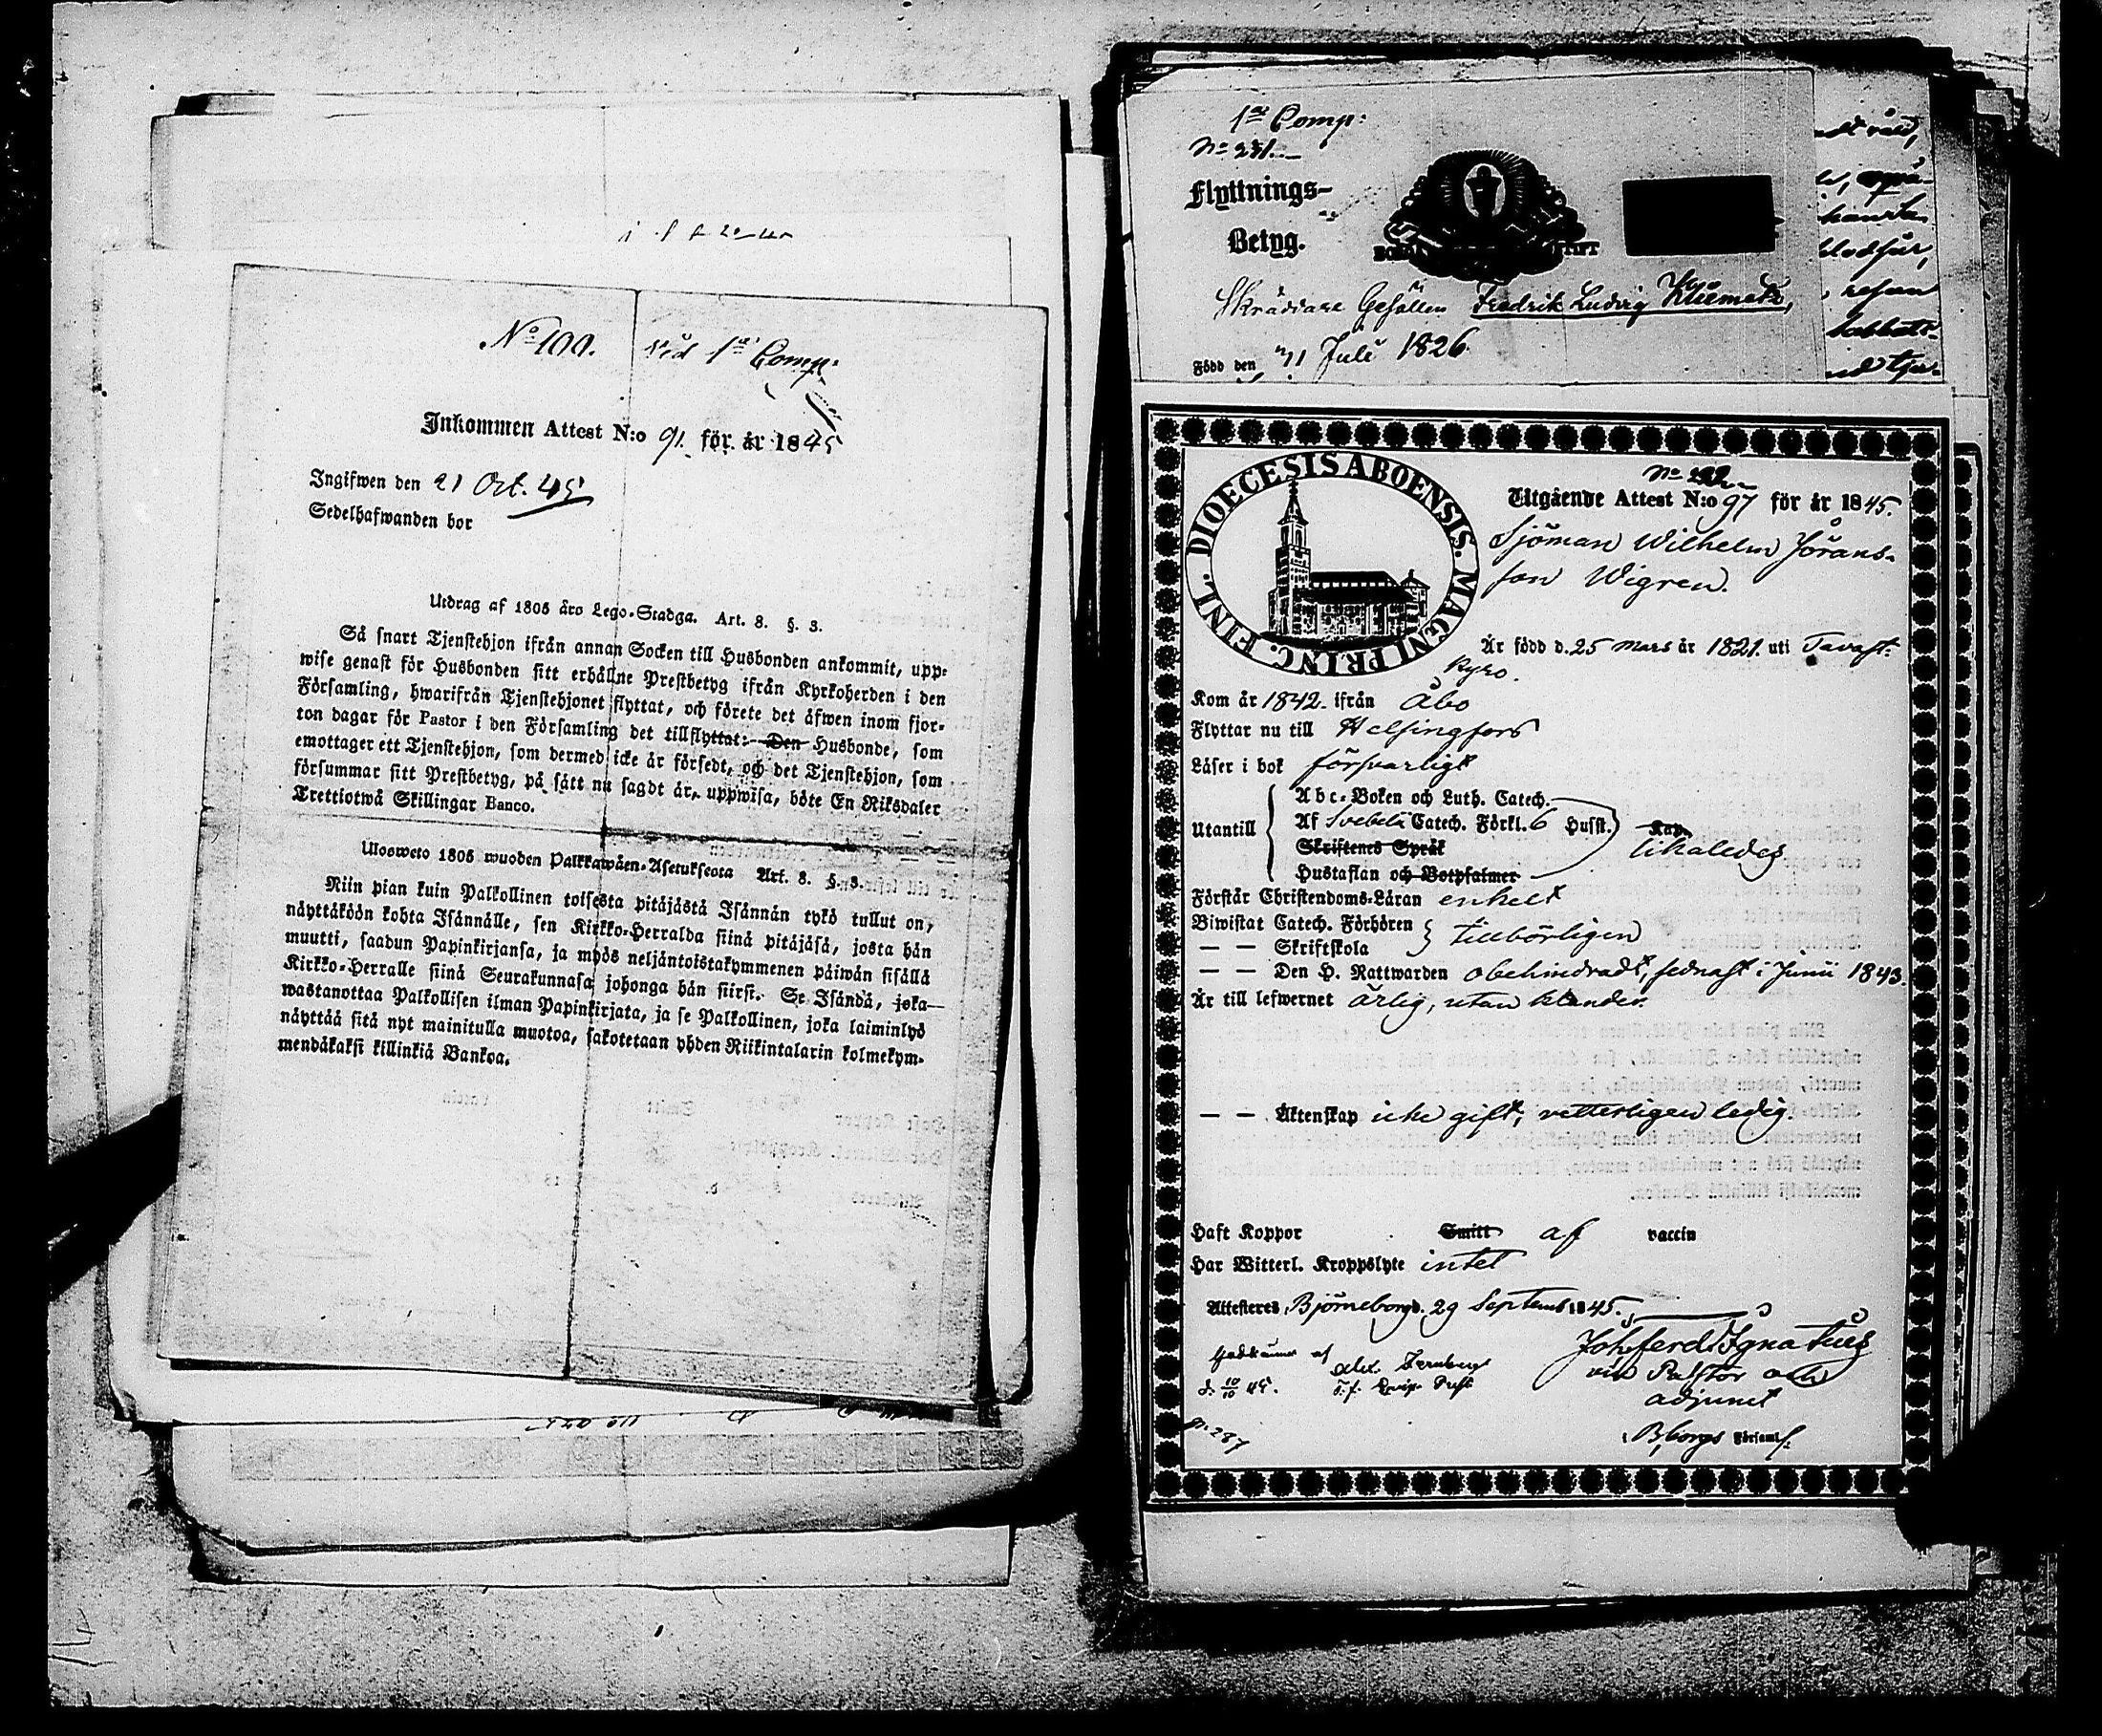 No 100. Vid 1sta Comp:
Inkommen Attest N:o 91. för år 1845
Ingifwen den 21 Oct. 45
Sedelhafwanden bor
Utdrag af 1805 års Lego-Stadga. Art. 8. §. 3.
Så snart Tjenstehjon ifrån annan Socken till Husbonden ankommit, upp-
wise genast för Husbonden sitt erhållne Prestbetyg ifrån Kyrkoherden i den
Församling, hwarifrån Tjenstehjonet flyttat, och förete det äfwen inom fjor-
ton dagar för Pastor i den Församling det tillflyttat: Den Husbonde, som
emottager ett Tjenstehjon, som dermed icke är försedt, och det Tjenstehjon, som
försummar sitt Prestbetyg, på sätt nu sagdt är, uppwisa, böte En Riksdaler
Trettiotwå Skillingar Banco.
Ulosweto 1805 wuoden Palkkawäen-Asetuksesta Art. 8. §. 3.
Niin pian kuin Palkollinen toisesta pitäjästä Isännän tykö tullut on,
näyttäköön kohta Isännälle, sen Kirkko-Herralda siinä pitäjäsä, josta hän
muutti, saadun Papinkirjansa, ja myös neljäntoistakymmenen päiwän sisällä
Kirkko-Herralle siinä Seurakunnasa johonga hän siirsi. Se Isändä, joka
wastanottaa Palkollisen ilman Papinkirjata, ja se Palkollinen, joka laiminlyö
näyttää sitä nyt mainitulla muotoa, sakotetaan yhden Riikintalarin kolmekym-
mendäkaksi killinkiä Bankoa.
1sta Comp:
No 231.
Flyttnings-
Betyg.
Skräddare Gesällen Fredrik Ludvig
Född den 31 Juli 1826.
DIOECESIS ABOENSIS. MAGNI PRINC. FINL.
Utgående Attest N:o 97 för år 1845.
Sjöman Wilhelm Jörans-
son Wigren.
Är född d. 25 Mars år 1821. uti Tavast-
Kyro.
Kom år 1842. ifrån Åbo
Flyttar nu till Helsingfors
Läser i bok försvarligt
Abc-Boken och Luth. Catech.
Utantill Af Svebelii Catech. Förkl. 6 Husst. Kap. likaledes
Skriftenes Språk
Hustaflan och Botpsalmer
Förstår Christendoms-Läran enkelt
Biwistat Catech. Förhören
— — Skriftskola tillbörligen
— — Den H. Nattwarden obehindradt, sednast i Junii 1843.
Är till lefwernet ärlig, utan klander.
— — Äktenskap icke gift, vetterligen ledig.
Haft Koppor Smitt af vaccin
Har Witterl. Kroppslyte intet
Attesteres, Björneborg d. 29 Septemb 1845.
Joh. Ferd. Ignatius
vice Pastor och
adjunct
i B,borgs Församl.
d. 10/10 45.
N: 287